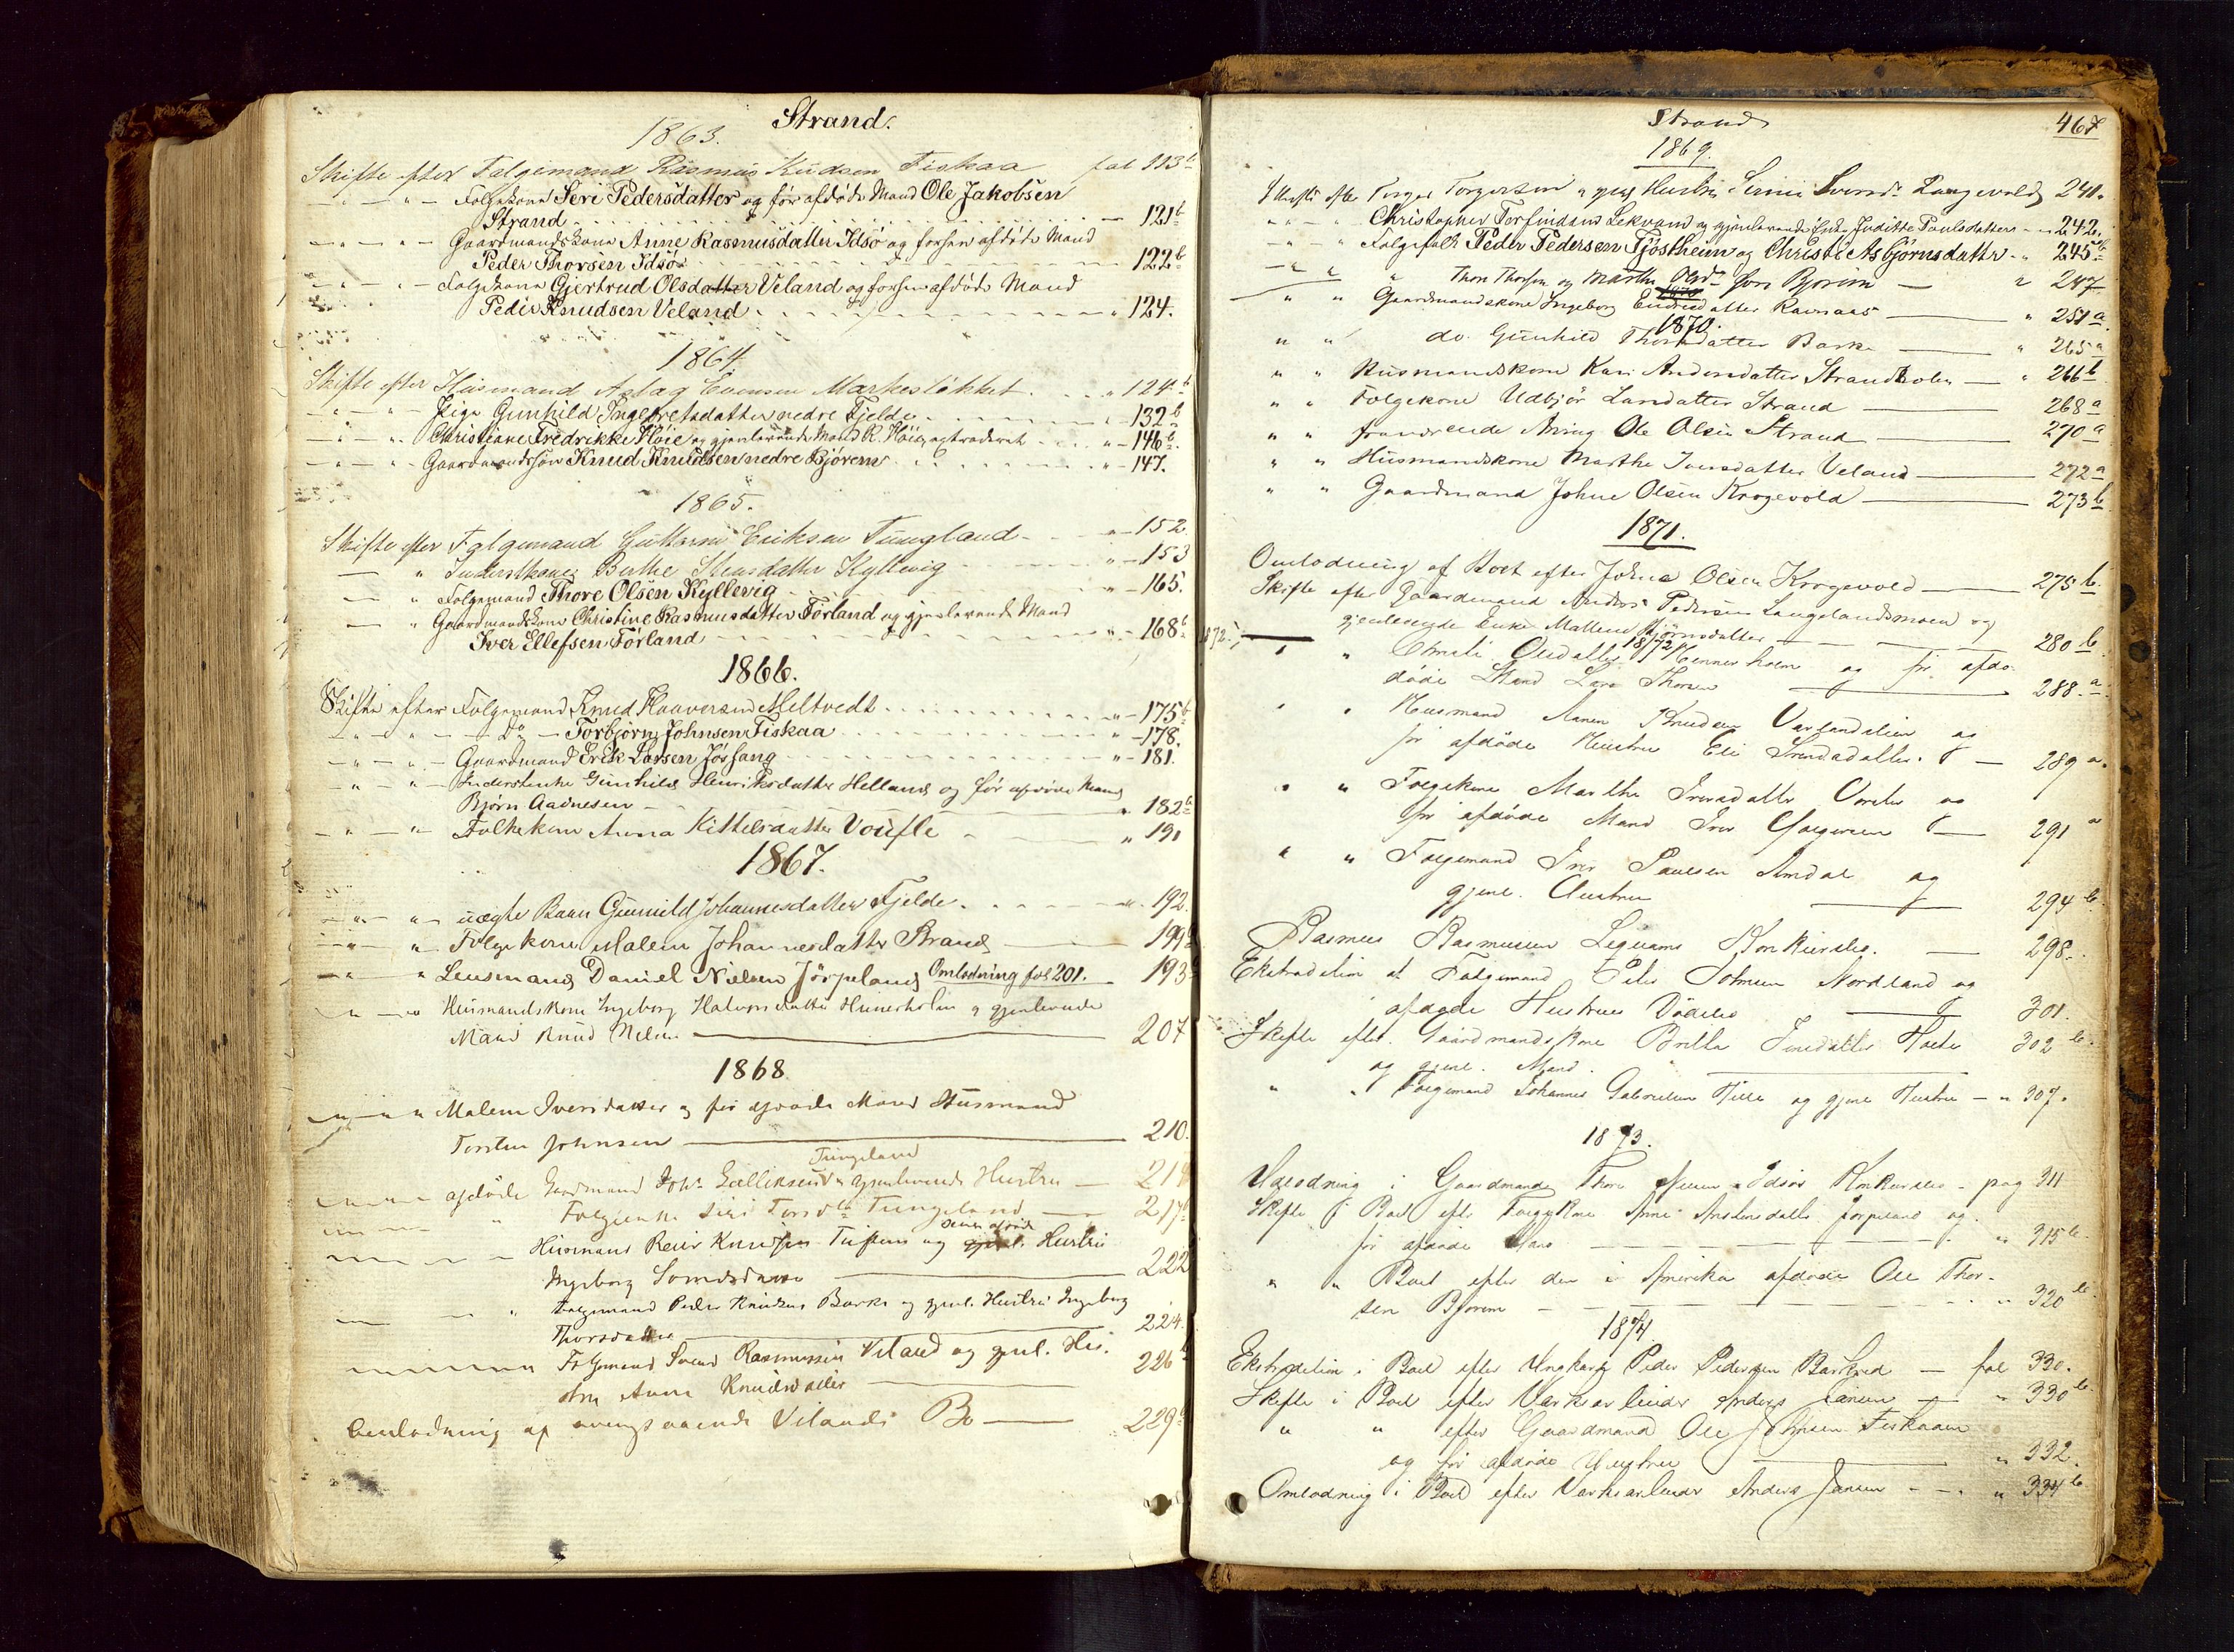 Strand.
1863.
Skifte efter Folgemand Rasmus Knudsen Fiskaa fol 113b
— " — " — Folgekone Seri Pedersdatter og før afdøde Mand Ole Jakobsen
Strand 121b
— " — " — Gaardmandskone Anne Rasmusdatter Idsø og forhen afdøde Mand
Peder Thorsen Idsøe 122b
— " — " — Folgekone Gjertrud Olsdatter Veland og forhen afdøde Mand
Peder Knudsen Veland " 124.
1864.
Skifte efter Husmand Aslag Evensen Markesløkket " 124b
— " — " — Pige Gunhild Ingebretsdatter nedre Fjelde " 132b
— " — " Christiane Fredrikke Høie og gjenlevende Mand R. Høie, extraderet " 146b
— " — " Gaardmandssøn Knud Knudsen nedre Bjørem " 147.
1865.
Skifte efter Folgemand Guttorm Eriksen Tungland " 152
— " Inderstkone Berthe Stensdatter Kyllevig " 153
— " Folgemand Thore Olsen Kyllevig " 165.
— " Gaardmandskone Christine Rasmusdatter Førland og gjenlevende Mand
Iver Ellefsen Førland " 168b
1866.
Skifte efter Folgemand Knud Haaversen Meltvedt " 175b
— " — Do — Torbjørn Johnsen Fiskaa " 178.
— " — " Gaardmand Erik Larsen Jøssang " 181.
— " — " Inderstenke Gunhild Henriksdatter Helland og før afdøde Mand
Bjørn Aadnesen " 182b
— " — " Folkekone Anna Kittelsdatter " 191
1867.
— " — " uægte Barn Gunnild Johannesdatter Fjelde " 192.
— " Folgekone Malene Johannesdatter Strand 199
— " Lensmand Daniel Nielsen Jørpeland Omlodning fol 201. 193
— " Husmandskone Ingeborg Halvorsdatter Hunersholm og gjenlevende
Mand Knud Nilsen 207
1868
" Malene Iversdatter og før afdøde Mand Husmand
Torsten Johnsen 210.
Tungeland
" afdøde Gaardmand Johs Gulliksen og gjenlevende Hustru 214
" Folgeenke Siri Torsdr Tungeland 217b
Husmand Reier Knudsen og før afdøde Hustru
Ingeborg 222
" Folgemand Peder Knudsen Barke og gjenl. Hustru Ingeborg
Thorsdatter 224.
" Folgemand Svend Rasmussen Veland og gjenl. Hu-
stru Anna Knudsdatter 226
Omlodning af ovennævnte Velands Bo 229b
Strand 467
1869.
Skifte efter Torger Torgersen og gjenl Hustru Svendr Langevold 241.
" Christopher Torfindsens Lekvam og gjenlevende Enke Juditte Paulsdatter 242.
" Folgefolk Peder Pedersen Tjøstheim og Christi Asbjørnsdatter 245b
" Thore Thorsen og Martha Olsdr Bjørem " 247
" Gaardmandskone Ingeborg Endresdatter Ravnaas " 251a
1870.
" " do. Gunhild Thorsdatter Barke " 265a
" " Husmandskone Kari Andersdatter Strandholen " 266b
" " Folgekone Udbjør Larsdatter Strand 268a
" " fraværende Ole Olsen Strand 270a
" " Husmandskone Marthe Iversdatter Veland 272a
" " Gaardmand Johne Olsen Krogevold 273b
1871.
Omlodning af Boet efter Johne Olsen Krogevold 275b.
Skifte efter Gaardmand Anders Pedersen Langelandsmoen og
gjenlevende Enke Mallene Bjørnsdatter 280b
1872
" " Christi Olsdatter og før afdø-
døde Mand Lars Thorsen 288.a
" " Husmand Aanen Knudsen og
før afdøde Hustru Eli Svendsdatter. 289a.
" " Folgekone Marthe Iversdatter og
før afdøde Mand Iver 291a
" " Folgemand Iver Paulsen Amdal og
gjenl. Hustru 294b.
Rasmus Rasmussen Konkursbo. 298.
Ekstradition af Folgemand Peder Johnsen Nordland og
afdøde Hustrues Dødsbo 301.
Skifte efter Gaardmandskone Britta 302b.
og gjenl. Mand.
" " Folgemand Johannes Gabrielsen Hille og gjenl Hustru " 307.
1873.
Udlodning i Gaardmand Thore Nilsen Idsøs Konkursbo pag 311
Skifte i Boet efter Folgekone Anne Jørpeland og
før afdøde Mand " 315b.
" " Boet efter den i Amerika afdøde Ole Thor-
sen Bjørem " 320b.
1874
Ekstradition i Boet efter Ungkarl Peder Pedersen Barkved fol 330.
Skifte i Boet efter Værksarbeider Anders Jansen " 330b.
" " efter Gaardmand Ole Johnsen Fiskaaen
og før afdøde Hustru " 332.
Omlodning i Boet efter Værksarbeider Anders Jansen " 334b